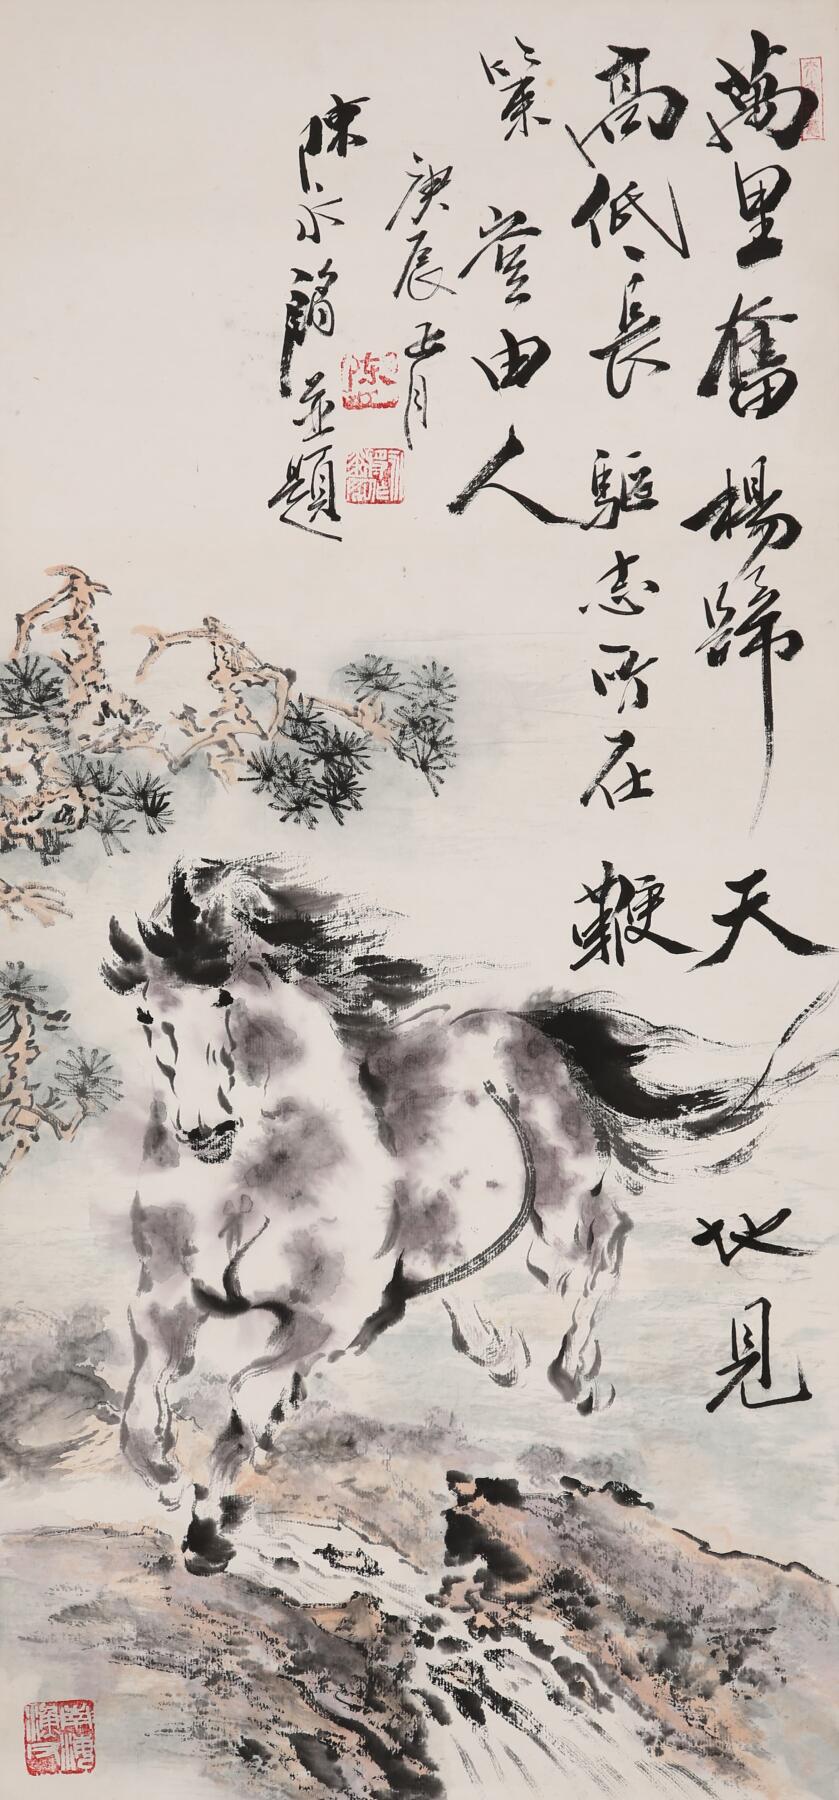 萬里奮楊蹄天地見
高低長驅志所在鞭
策豈由人
庚辰正月
陳永鏘並題